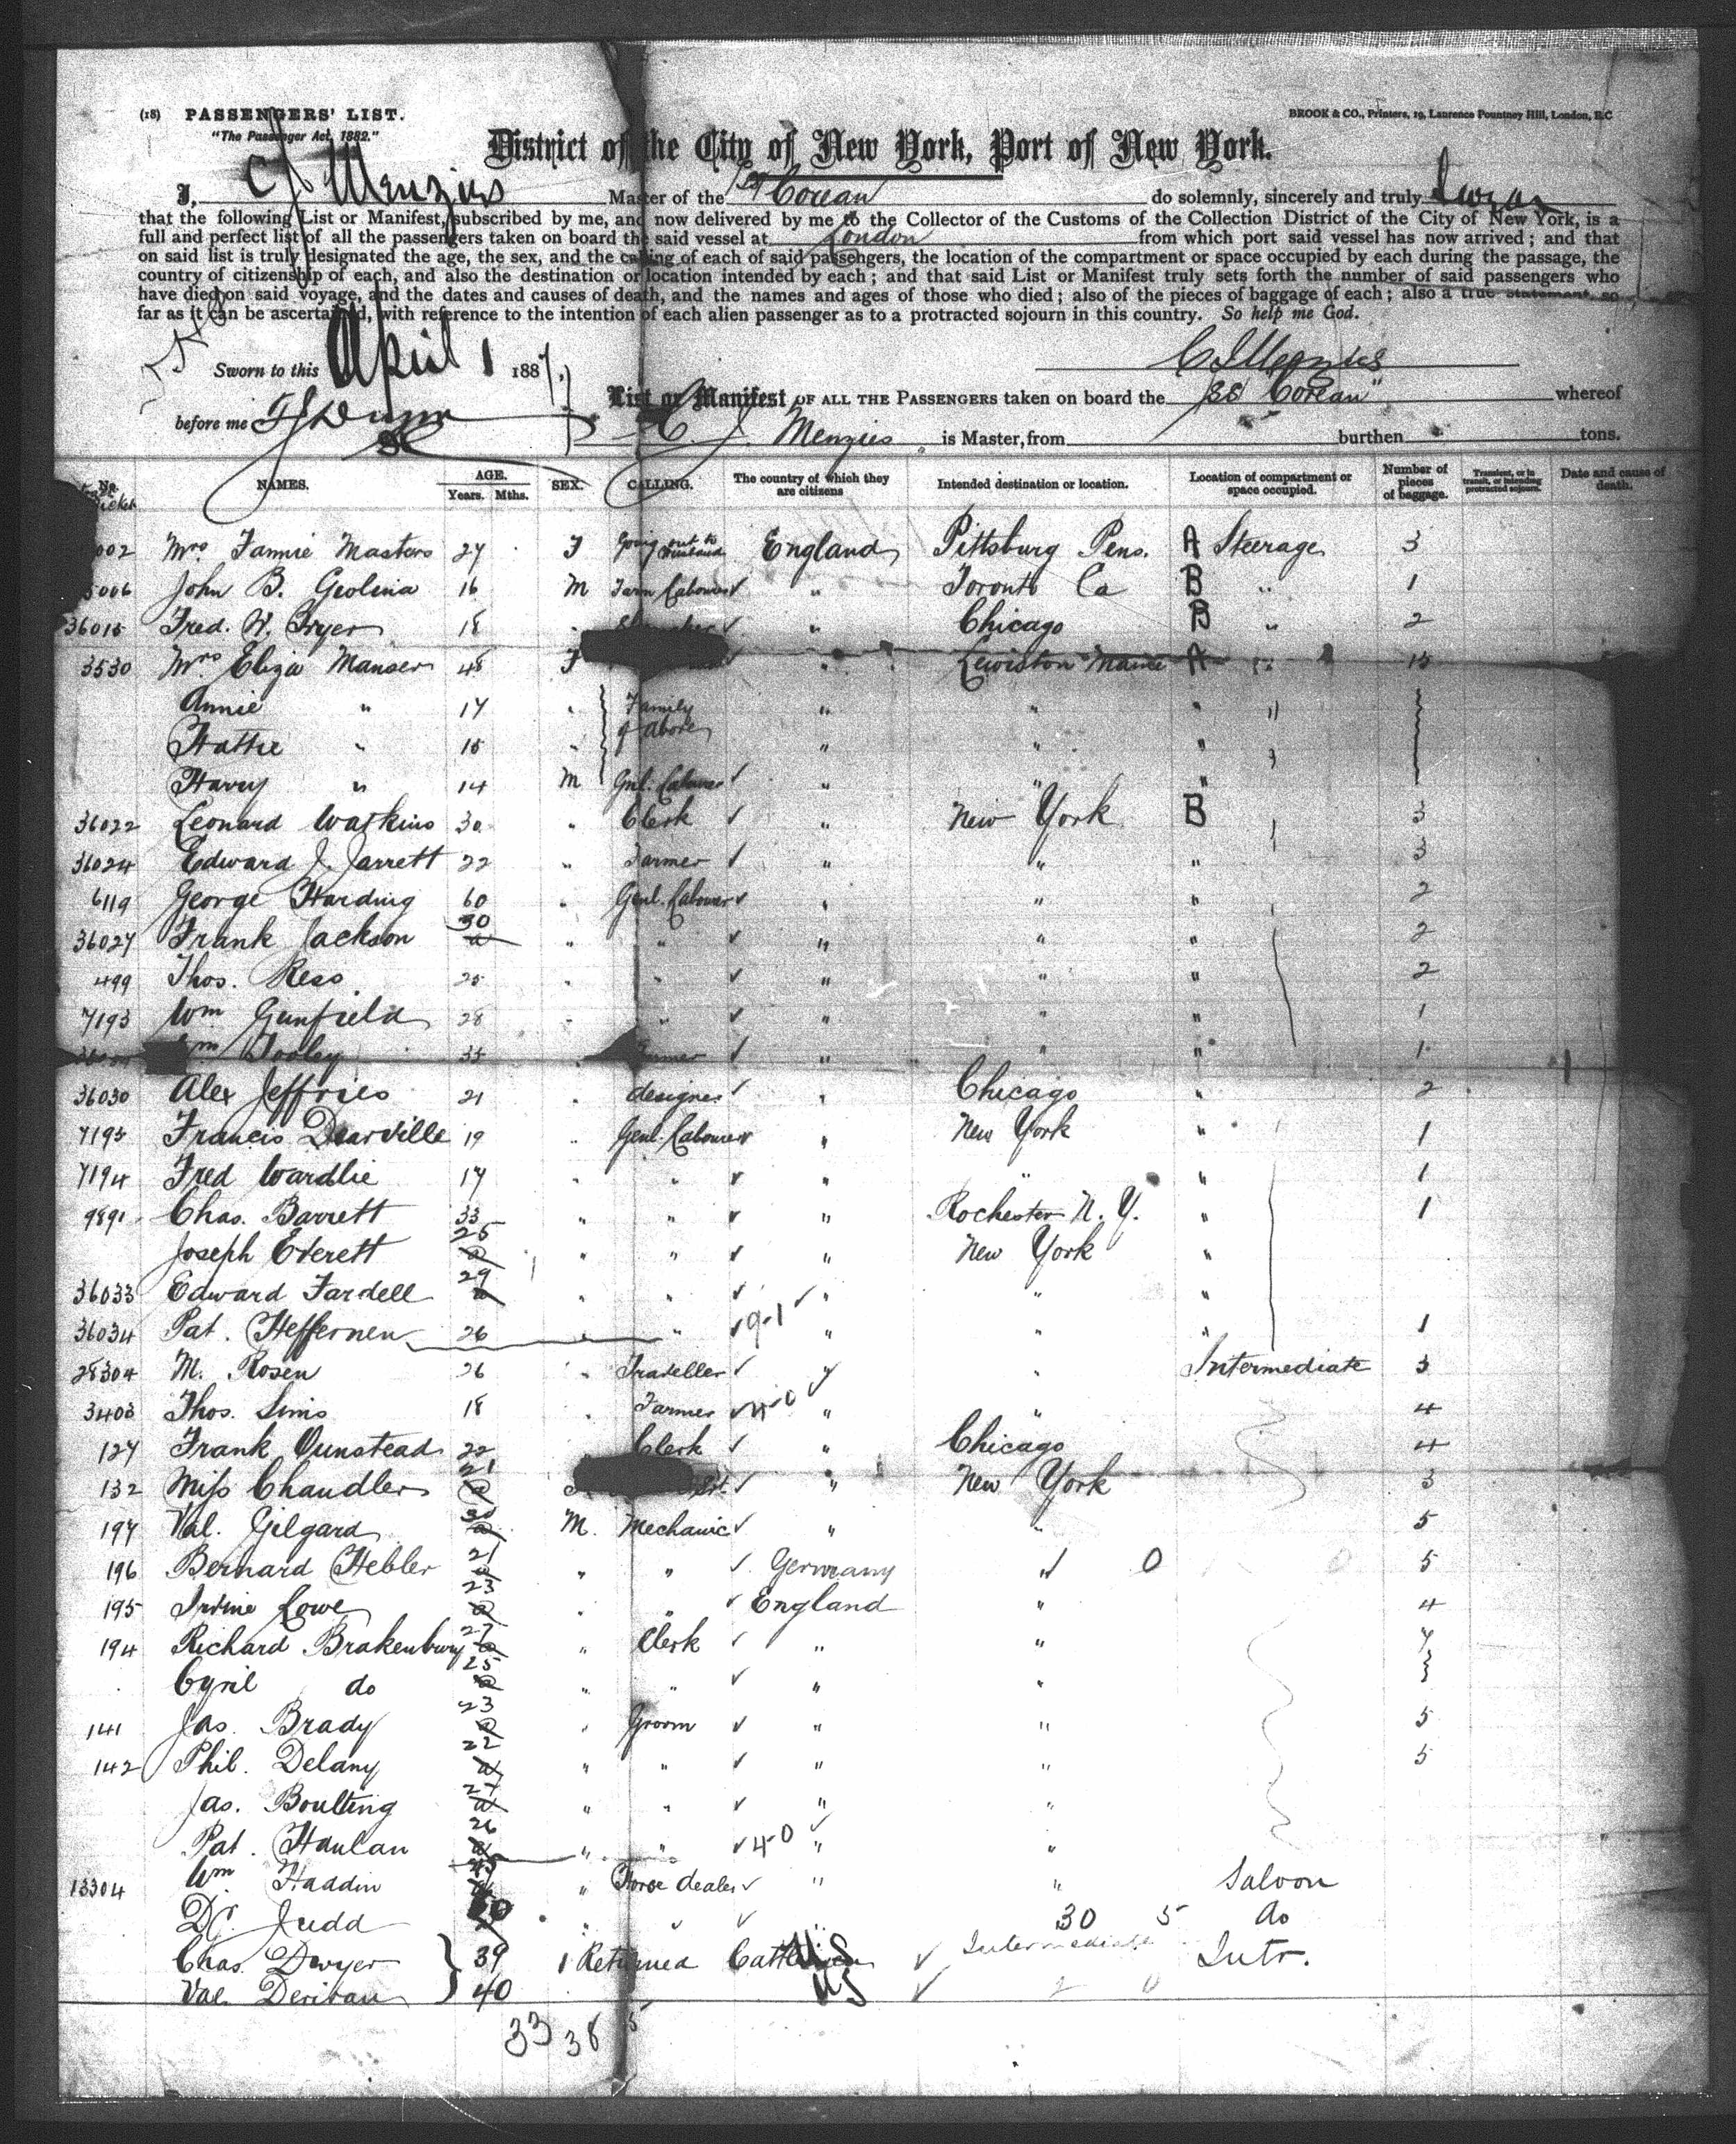 (18) PASSENGERS' LIST.
BROOK & CO., Printers, 19, Laurence Pountney Hill, London, E.C
"The Passenger Act, 1882."
District of the City of New York, Port of New York.
I, C J Menzies Master of the SS Corean do solemnly, sincerely and truly Swear
that the following List or Manifest, subscribed by me, and now delivered by me to the Collector of the Customs of the Collection District of the City of New York, is a
full and perfect list of all the passengers taken on board the said vessel at London from which port said vessel has now arrived; and that
on said list is truly designated the age, the sex, and the calling of each of said passengers, the location of the compartment or space occupied by each during the passage, the
country of citizenship of each, and also the destination or location intended by each; and that said List or Manifest truly sets forth the number of said passengers who
have died on said voyage, and the dates and causes of death, and the names and ages of those who died; also of the pieces of baggage of each; also a true statement, so
far as it can be ascertained, with reference to the intention of each alien passenger as to a protracted sojourn in this country. So help me God.
Sworn to this April 1 1887
C J Menzies
List or Manifest OF ALL THE PASSENGERS taken on board the SS "Corean" whereof
before me
C. J. Menzies is Master, from burthen tons.
No. NAMES. AGE. Years. Mths. SEX. CALLING. The country of which they are citizens Intended destination or location. Location of compartment or space occupied. Number of pieces of baggage. Transient, or in transit, or intending protracted sojourn. Date and cause of death.
002 Mrs Fannie Masters 27 F Going out to husband England Pittsburg Pens. A Steerage 3
5006 John B. Geolina 16 M Farm Labourer ✓ " Toronto Ca B " 1
36015 Fred. W. Fryer 18 " ✓ " Chicago B " 2
3530 Mrs Eliza Manser 48 F " Lewiston Maine A " 15
Annie " 17 " Family of above " " " "
Hattie " 15 " " " " "
Harry " 14 M Gnl. Labourer ✓ " " "
36022 Leonard Watkins 30 " Clerk ✓ " New York B 3
36024 Edward J. Jarrett 22 " Farmer ✓ " " " 3
6119 George Harding 60 " Genl. Labourer ✓ " " " 2
36027 Frank Jackson 30 " " ✓ " " " 2
499 Thos. Ress 25 " " ✓ " " " 2
7193 Wm Gunfield 28 " " ✓ " " " 1
Wm Tooley 35 " Farmer ✓ " " " 1
36030 Alex Jeffries 21 " designer ✓ " Chicago " 2
7195 Francis Dearville 19 " Genl. Labourer ✓ " New York " 1
7194 Fred Wardlie 17 " " ✓ " " " 1
9891 Chas. Barrett 33 " " ✓ " Rochester N. Y. " 1
Joseph Everett 25 " " ✓ " New York "
36033 Edward Fardell 29 " " ✓ " " "
36034 Pat. Heffernen 26 " " ✓ 9-1 " " " 1
28304 M. Rosen 26 " Traveller ✓ " " Intermediate 3
3403 Thos. Sims 18 " Farmer ✓ 4-0 " " 4
127 Frank Ounstead 22 Clerk ✓ " Chicago 4
132 Miss Chandler 21 ✓ " New York 3
197 Val. Gilgard 30 M. Mechanic ✓ " " 5
196 Bernard Hebler 21 " " ✓ Germany " 0 5
195 Irvine Lowe 23 " " ✓ England " 4
194 Richard Brakenbury 27 " Clerk ✓ " " 7
Cyril do 25 " " ✓ " "
141 Jas. Brady 23 " Groom ✓ " " 5
142 Phil. Delany 22 " " ✓ " " 5
Jas. Boulting 27 " " ✓ " "
Pat. Hanlan 26 " " ✓ 4-0 " "
13304 Wm Haddin 45 " Horse dealer ✓ " " Saloon
Dr. Judd " " ✓ " 30 5 do
Chas. Dwyer 39 1 Returned Cattlemen US ✓ Intermediate Intr.
Val. Derivan 40 US ✓ 2 0
33 38 5